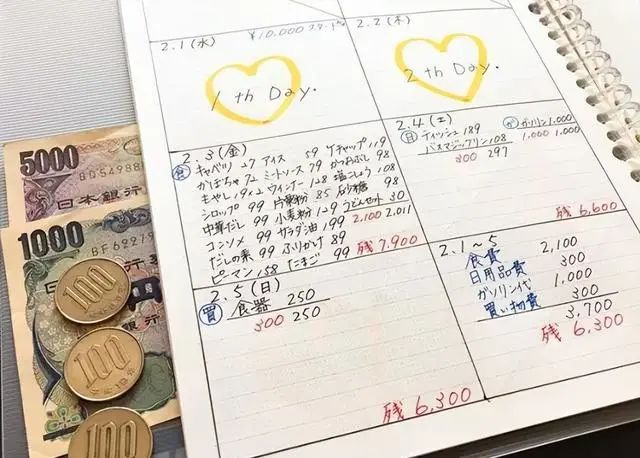 2.1(水)
¥10.000スタート
1 th Day.
2.2(木)
2 th Day.
2.3(金)
食
キャベツ 27 アイス 59 ケチャップ 119
かぼちゃ 72 ミートソース 79 かつおぶし 98
もやし 19×2 ウィンナー 128 塩こしょう 108
シロップ 99 片栗粉 85 砂糖 98
中華だし 99 小麦粉 129 うどんセット 30
コンソメ 99 サラダ油 199 2,100 2,011
だしの素 99 ふりかけ 89
ピーマン 158 たまご 99
残 7,900
2.4(土)
日 ティッシュ 189
バスマジックリン 108
300 297
ガ ガソリン 1.000
1.000 1.000
残 6,600
2.5(日)
買 食器 250
300 250
残 6,300
2.1〜5
食費 2,100
日用品費 300
ガソリン代 1,000
買い物費 300
3,700
残 6,300
5000
日本銀行
1000
銀行
100
100
100